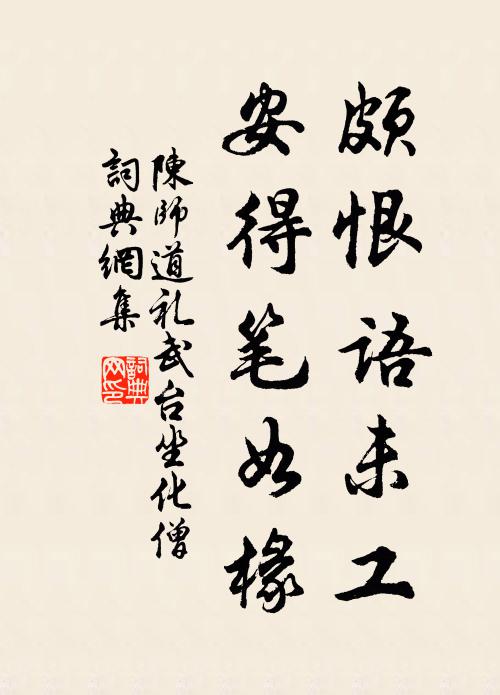 頗恨语未工
安得笔如椽
陳師道礼武台坐化僧
詞典網集
詞典網印